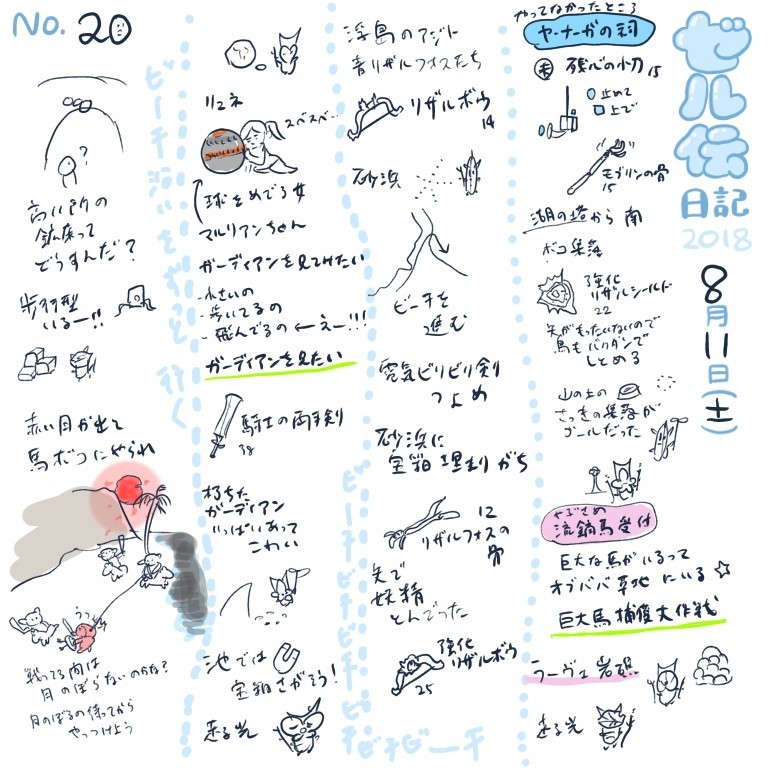 ゼル伝
日記
2018
8月11日(土)
やってなかったところ
ヤ・ナーガの祠
残心の小刀 15
止めて
上で
モブリンの骨
15
湖の塔から南
ボコ集落
強化
リザルシールド
22
矢がもったいないので
馬もバクダンで
しとめる
山の上の
さっきの集落が
ゴールだった
やぶさめ
流鏑馬受付
巨大な馬がいるって
オブババ草地にいる☆
巨大馬捕獲大作戦
ラーヴェ岩礁
走る光
浮島のアジト
青リザルフォスたち
リザルボウ
14
砂浜
ビーチを
進む
電気ビリビリ剣
つよめ
砂浜に
宝箱埋まりがち
12
リザルフォスの
骨
矢で
妖精
とんでった
強化
リザルボウ
25
ビーチビーチビーチビーチビーチ
リュネ
スベスベ…
球をめでる女
マルリアンちゃん
ガーディアンを見てみたい
・小さいの
・歩いてるの
・飛んでるの←えー!!!
ガーディアンを見たい
騎士の両手剣
38
朽ちた
ガーディアン
いっぱいあって
こわい
池では
宝箱さがそう!
走る光
ビーチ沿いをずっと行く
No. 20
?
高い所の
鉱床って
どうすんだ?
歩行型
いるー!!
赤い月が出て
馬ボコにやられ
うっ
戦ってる内は
月のぼらないのかな?
月のぼるの待ってから
やっつけよう